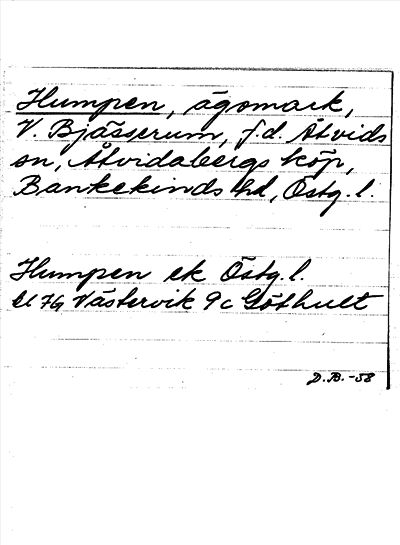 Humpen, ägomark,
V. Bjässerum, f.d. Åtvids
sn, Åtvidabergs köp,
Bankekinds hd, Östg. l.
Humpen ek Östg. l.
bl 7G Västervik 9c Göthult
D.B.-58